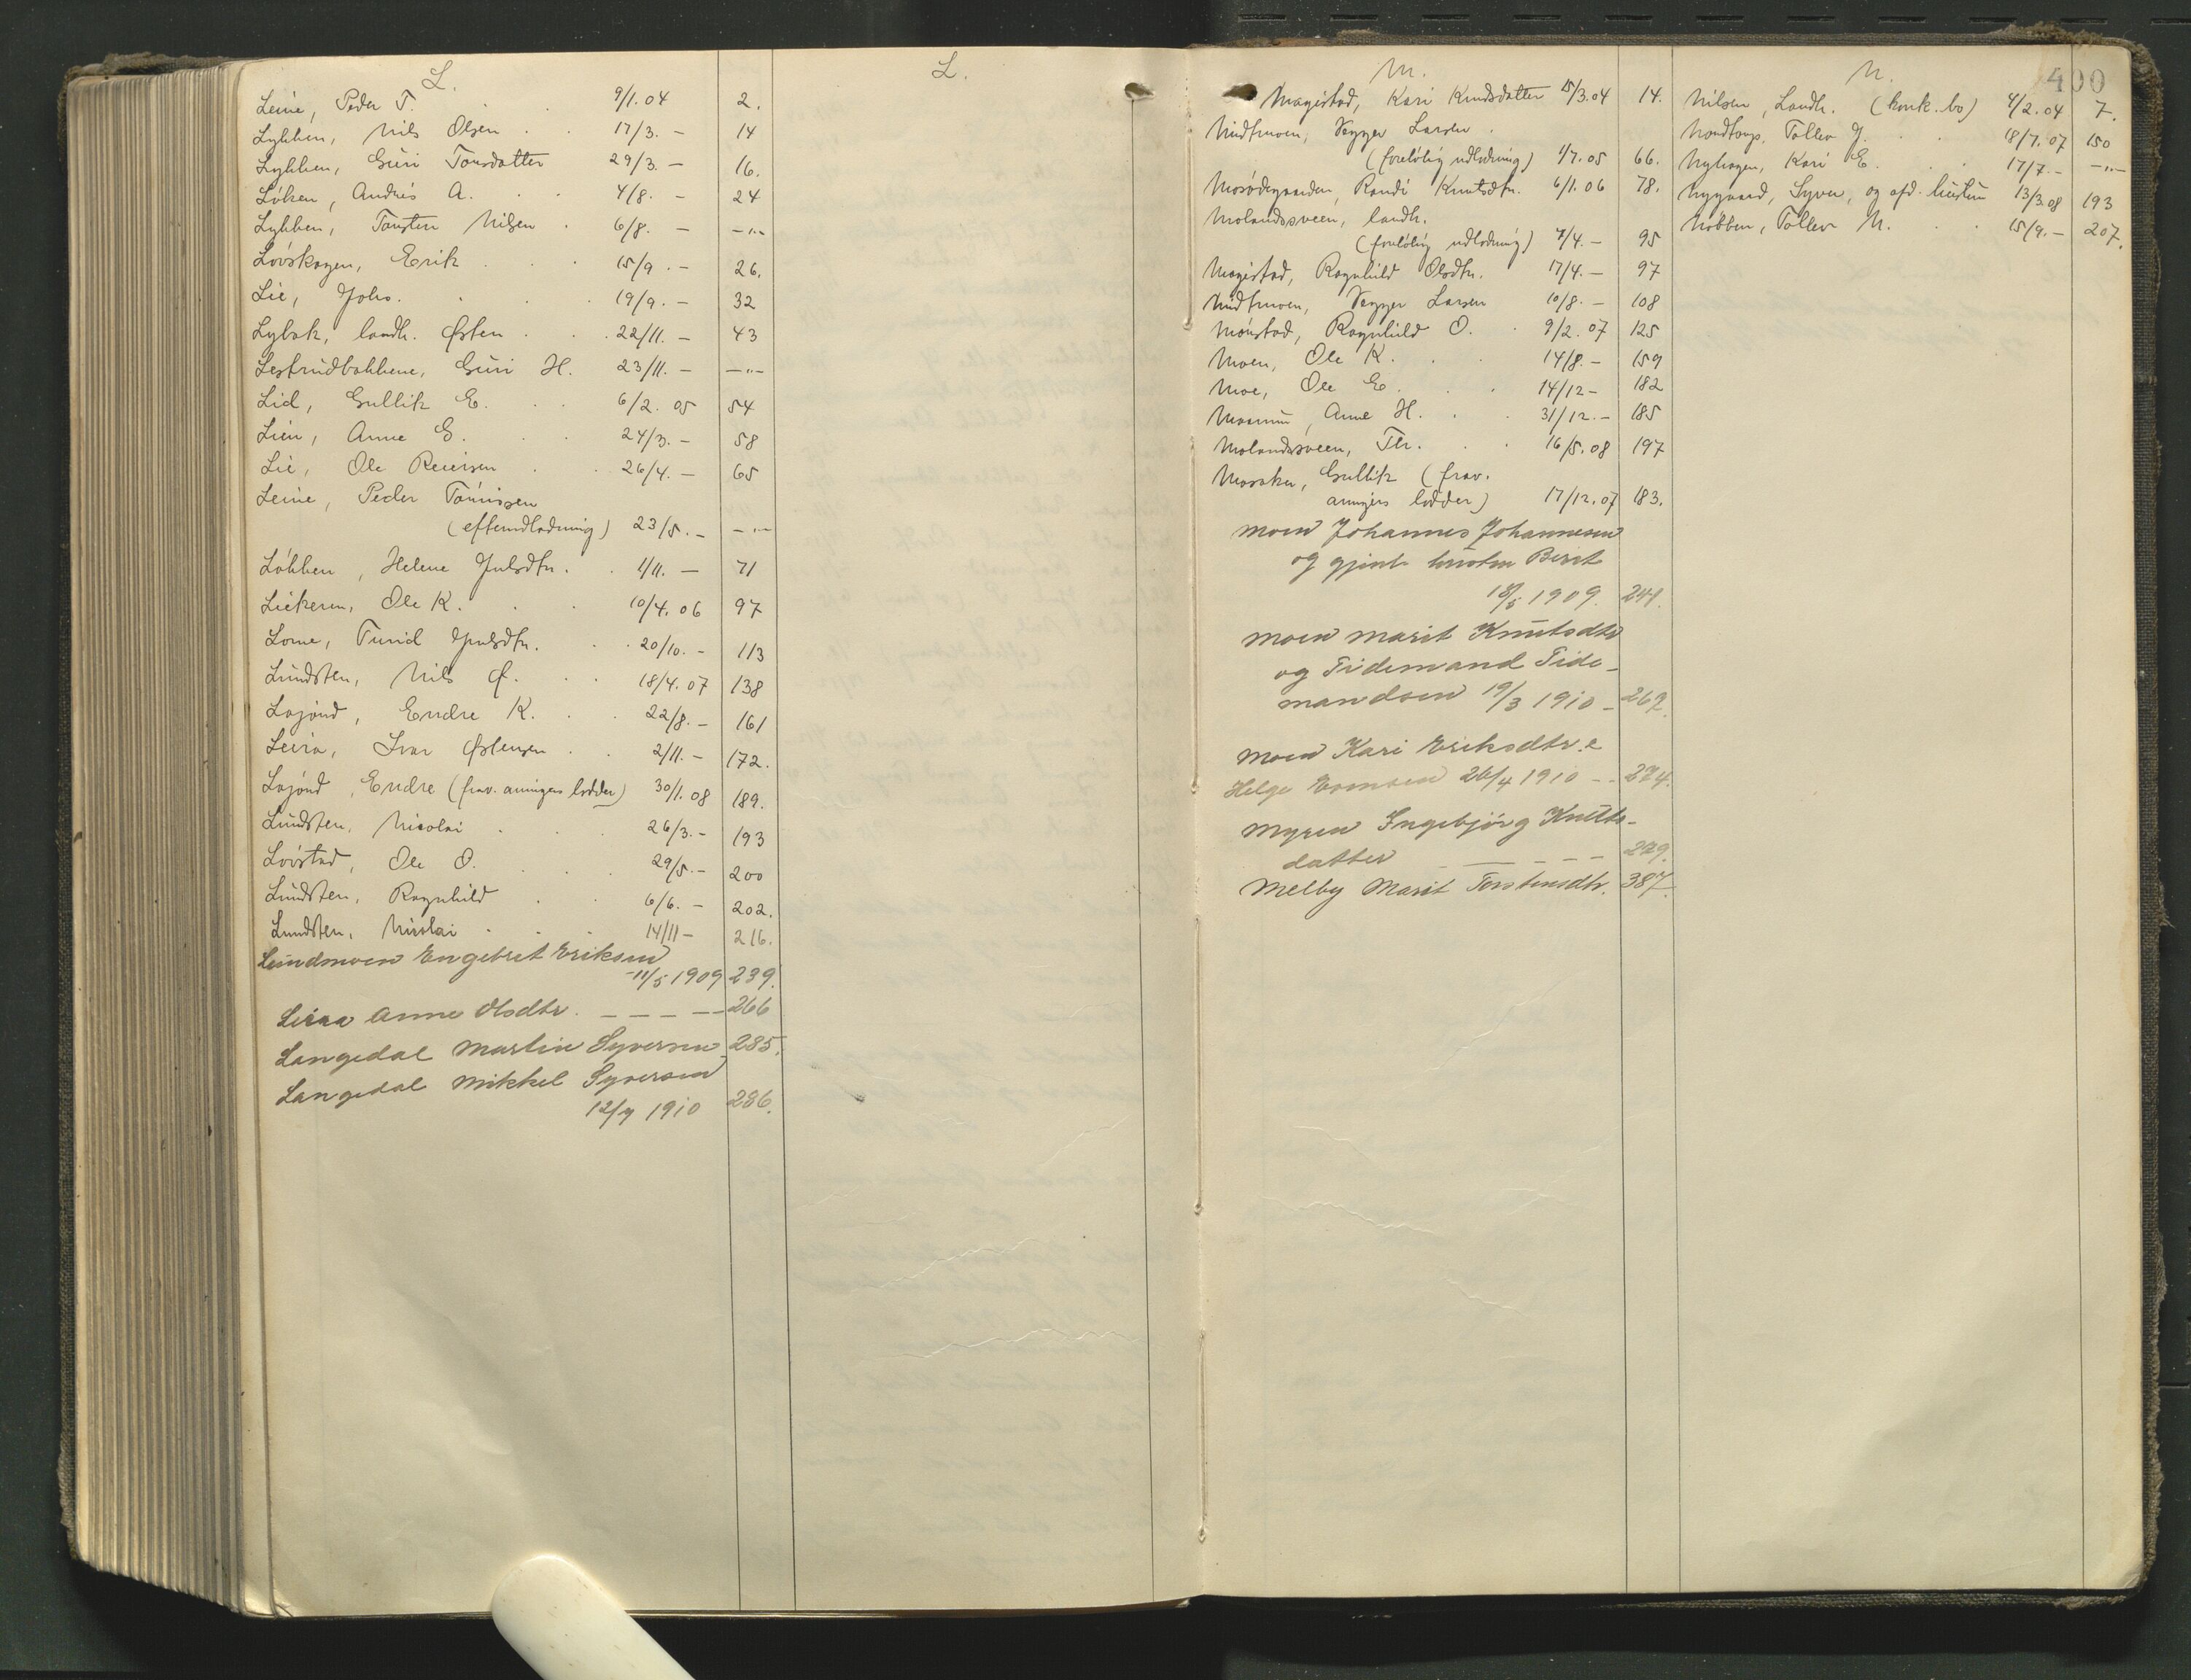 L.
Leine, Peder T. 9/1.04 2.
Lykken, Nils Olsen 17/3. - 14
Lykken, Guri Torsdatter 29/3. - 16.
Löken, Andrés A. 4/8. - 24
Lykken, Torsten Nilsen 6/8. - -"-
Lövskogen, Erik 15/9. - 26.
Lie, Johs. 19/9. - 32
Lybæk, landh. Østen 22/11. - 43
Lesteudbakkene, Guri H. 23/11. - -"-
Lid, Gullik E. 6/2. 05 54
Lien, Anne G. 24/3. - 58
Lie, Ole Reiersen 26/4. - 65
Leine, Peder Tömissen
(efterudlodning) 23/5. - -"-
Løkken, Helene Julsdtr. 1/11. - 71
Liekeren, Ole K. 10/4. 06 97
Lome, Turid Julsdtr. 20/10. - 113
Lundsten, Nils Ø. 18/4. 07 138
Lajord, Endre K. 22/8. - 161
Leira, Ivar Østensen 2/11. - 172.
Lajord, Endre (frav. arvingers lodder) 30/1. 08 189.
Lundsten, Nicolai 26/3. - 193
Lövstad, Ole O. 29/5. - 200
Lundsten, Ragnhild 6/6. - 202.
Lundsten, Nicolai 14/11 - 216.
Lundmoen Engebret Eriksen
11/5 1909 239.
Leira Anne Olsdtr. - - - - 266
Langedal Martin Syversen 285.
Langedal Mikkel Syversen
12/7 1910 286.
L.
M.
Magistad, Kari Knudsdatter 15/3.04 14.
Midtmoen, Segger Larsen
(foreløbig udlodning) 1/7. 05 66.
Mosödegaarden, Randi Knutsdtr. 6/1. 06 78.
Molandssveen, landh.
(foreløbig udlodning) 7/4. - 95
Magistad, Ragnhild Olsdtr. 17/4. - 97
Midtmoen, Segger Larsen 10/8. - 108
Mörstad, Ragnhild O. 9/2. 07 125
Moen, Ole K. 14/8. - 159
Moe, Ole E. 14/12 - 182
Anne H. 31/12. - 185
Molandssveen, Th. 16/5. 08 197
Mosaker, Gullik (frav.
arvingers lodder) 17/12. 07 183.
Moen Johannes Johannesen
og gjenl. hustru Berit
18/5 1909. 241.
Moen Marit Knutsdtr
og Tidemand Tide-
mandsen 19/3 1910 - 267.
Moen Kari Eriksdtr. e
Helge 26/4 1910 - - 274.
Myren Ingebjörg Knuts-
datter - - - - - 279.
Melby Marit Torstensdtr. 387.
N.
400
Nilsen, Landh. (konk. bo) 4/2. 04 7.
Nordtorp, Tollev J. 18/7. 07 150
Nyhagen, Kari E. 17/7. - -"-
Nygaard, Syver, og afd. hustru 13/3. 08 193
Nöbben, Tollev N. 15/9. - 207.